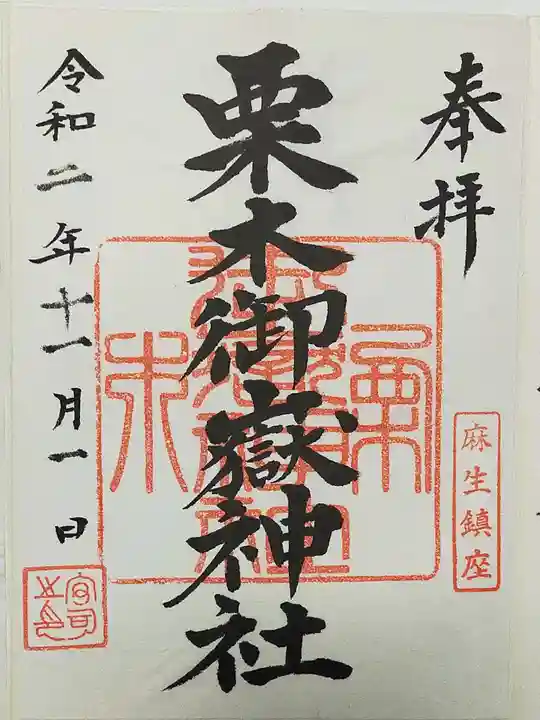 奉拝
麻生鎮座
栗木御嶽神社
令和二年十一月一日
宮司之印